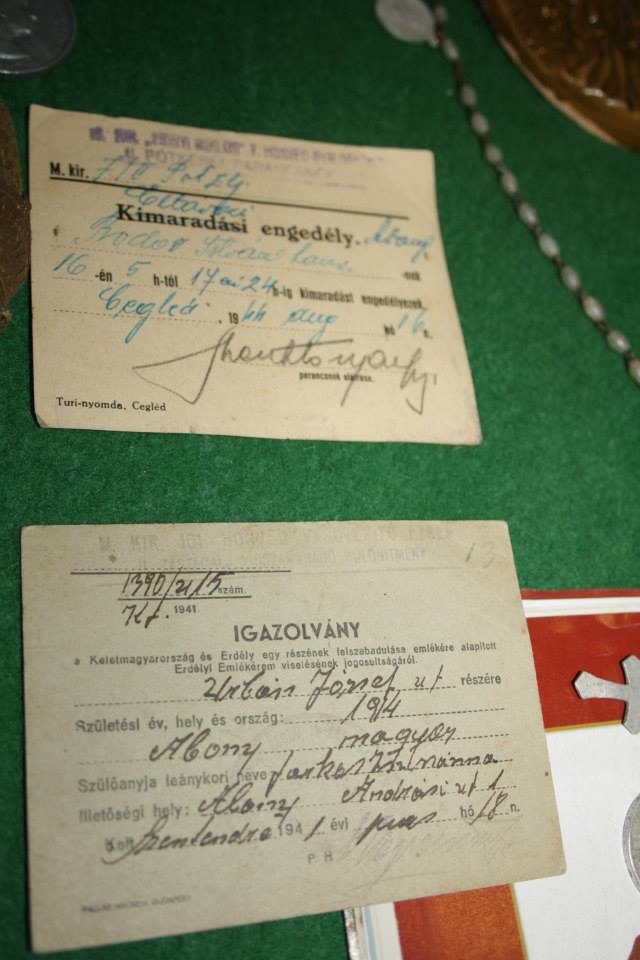 M. kir.
Kimaradási engedély.
Bodor István
16 -én 5 h-tól 17 én 24 h-ig kimaradást engedélyezek.
Cegléd, 1944 aug hó 16 n.
parancsnok aláírása.
Turi-nyomda, Cegléd
M. KIR. 101. HONVÉD
13
1390/21/15 szám.
1941.
IGAZOLVÁNY
a Keletmagyarország és Erdély egy részének felszabadulása emlékére alapított
Erdélyi Emlékérem viselésének jogosultságáról.
Urbán József részére
Születési év, hely és ország: 1914
Abony magyar
Szülőanyja leánykori neve Farkas Zsuzsánna
Illetőségi hely: Abony Andrási ut 1
Kelt Szentendre 1941 évi hó 18 n.
P H
PALLAS NYOMDA, BUDAPEST